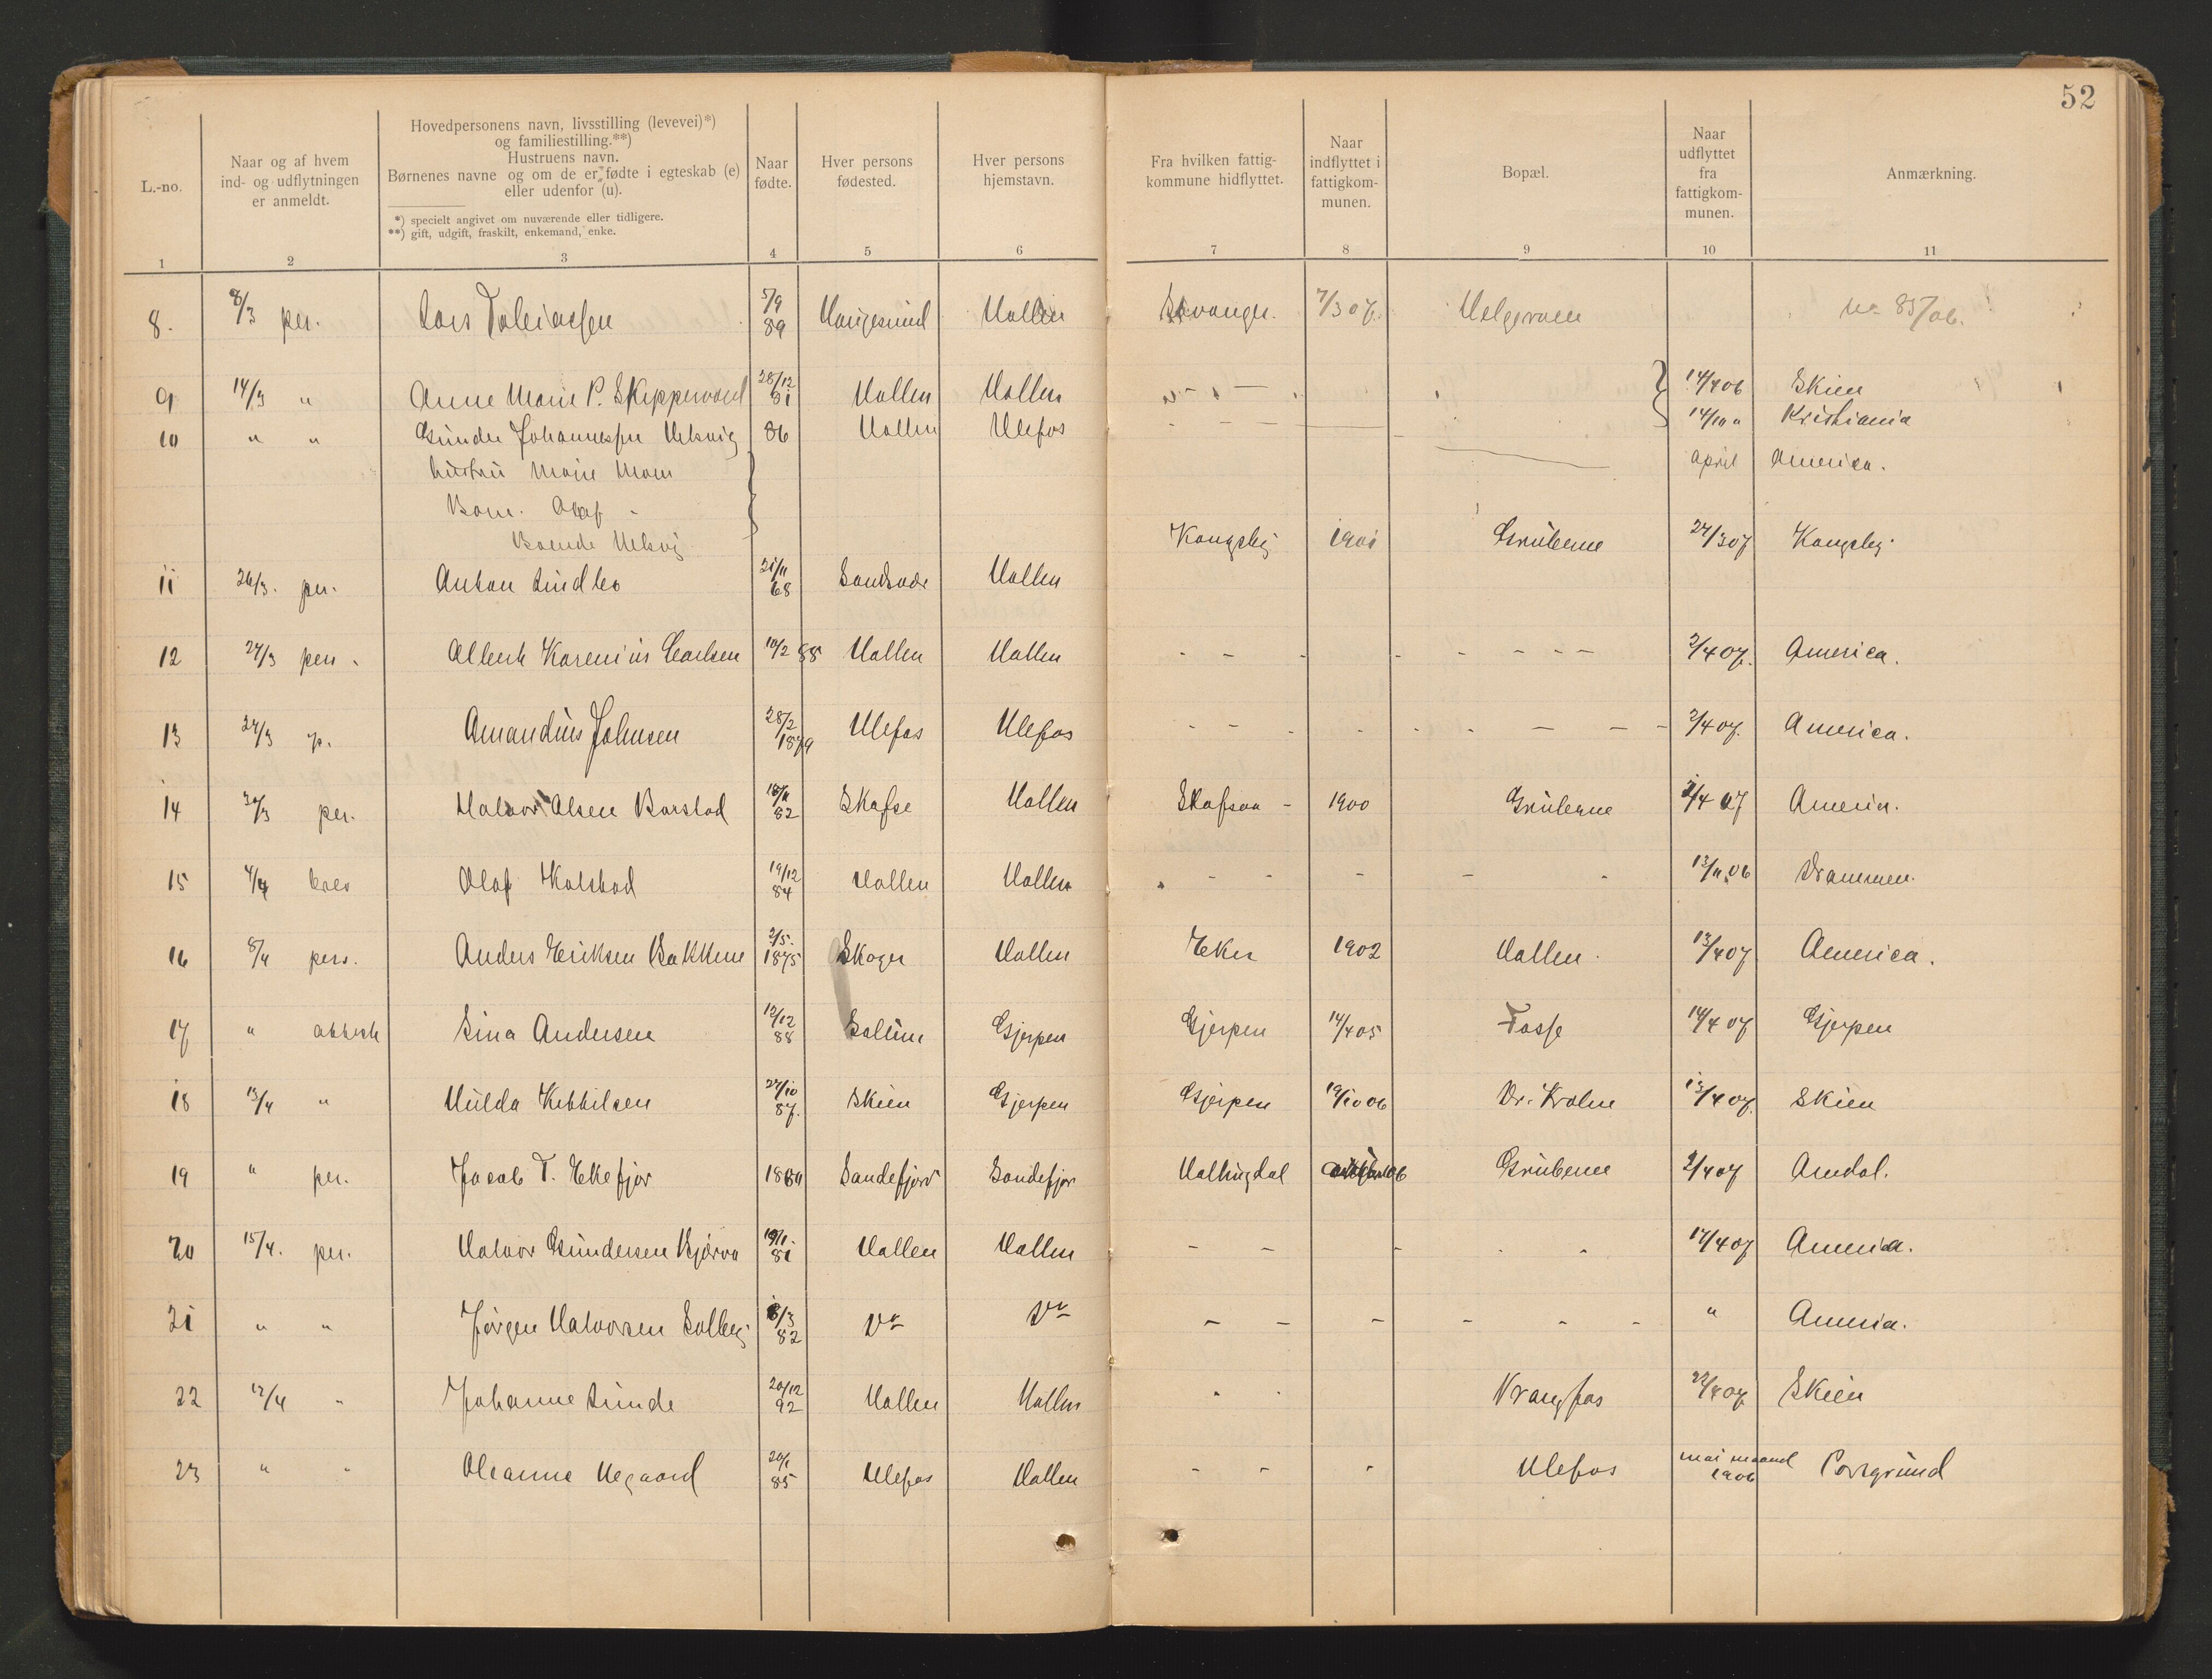 52
L.-no.
Naar og af hvem
ind- og udflytningen
er anmeldt.
Hovedpersonens navn, livsstilling (levevei)*)
og familiestilling.**)
Hustruens navn.
Børnenes navne og om de er fødte i egteskab (e)
eller udenfor (u).
*) specielt angivet om nuværende eller tidligere.
**) gift, udgift, fraskilt, enkemand, enke.
Naar
fødte.
Hver persons
fødested.
Hver persons
hjemstavn.
Fra hvilken fattig-
kommune hidflyttet.
Naar
indflyttet i
fattigkom-
munen.
Bopæl.
Naar
udflyttet
fra
fattigkom-
munen.
Anmærkning.
1 2 3 4 5 6 7 8 9 10 11
8. 8/3 per. Lars 5/9 89 Haugesund Hollen Stavanger 7/3 07. Helgeroen No 85/06.
9 14/3 " Anne Marie P. Skippervold 28/12 81 Hollen Hollen 14/4 06 Skien
14/10 " Kristiania
10 " " Gunder Johannessen 86 Hollen Ulefos April America.
hustru Marie
Barn. Olaf
Kongsbg 1901 Gruberne 27/3 07 Kongsbg
11 26/3. per. Anton Lindbo 21/11 68 Sandsvær Hollen
12 27/3 pers. Albert Karenius Carlsen 10/2 88 Hollen Hollen - - - - - - - - 2/4 07. America.
13 27/3 p. Amandius Johnsen 28/2 1879 Ulefos Ulefos - - - - - - - - - 2/4 07. America.
14 30/3 per. Halvor Olsen Barstad 18/11 82 Skafse Hollen Skafsaa - 1900 Gruberne 2/4 07 America.
15 4/4 brev Olaf Kolstad 19/12 84 Hollen Hollen - - - - - 13/11 06 Drammen.
16 8/4 pers. Anders Eriksen Bakkene 2/5. 1875 Skoger Hollen Eker 1902 Hollen. 13/4 07 America.
17 " attest Sina Andersen 12/12 88 Solum Gjerpen Gjerpen 14/4 05 Fosse 14/4 07 Gjerpen
18 13/4 " Hulda Kittilsen 27/10 87. Skien Gjerpen Gjerpen 19/10 06 Dr. 13/4 07. Skien
19 " per. Jacob T. Ekefjor Sandefjord Sandefjor Hallingdal Gruberne 2/4 07 Amdal.
20 15/4. per. Halvor Gundersen 19/1. 81 Hollen Hollen - - - - - 17/4 07 America.
21 " " Jørgen Halvorsen Solberg 8/3 82 Do Do - - - - - - " America.
22 12/4 " Johanne Lunde 20/12 92 Hollen Hollen - - Vrangfos 22/4 07 Skien
23 " " Oleanne Aagaard 20/1 85 Ulefos Hollen - - - Ulefos mai maaned
1906 Porsgrund